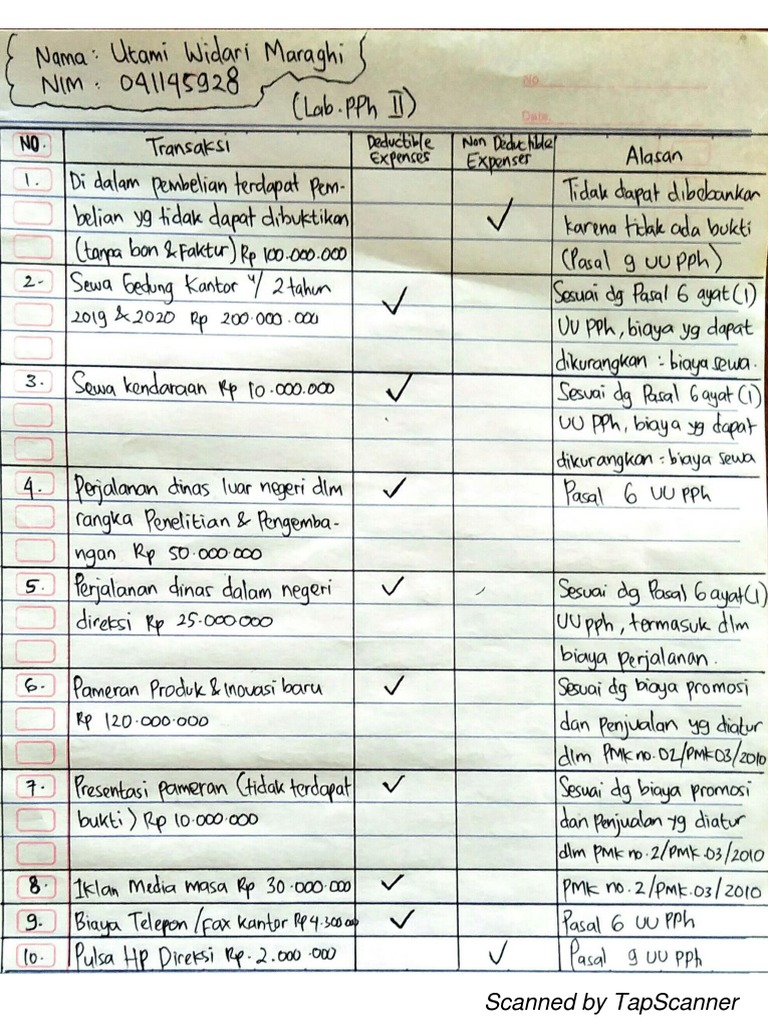 Nama : Utami Widari Maraghi
NIM : 041145928
(Lab. PPh II)
No.
Date.
NO. Transaksi Deductible Expenses Non Deductible Expenses Alasan
1. Di dalam pembelian terdapat Pem- Tidak dapat dibebankan
belian yg tidak dapat dibuktikan ✓ karena tidak ada bukti
(tanpa bon & Faktur) Rp 100.000.000 (Pasal 9 UU PPh)
2. Sewa Gedung Kantor u/ 2 tahun ✓ Sesuai dg Pasal 6 ayat (1)
2019 & 2020 Rp 200.000.000 UU PPh, biaya yg dapat
dikurangkan : biaya sewa.
3. Sewa kendaraan Rp 10.000.000 ✓ Sesuai dg Pasal 6 ayat (1)
UU PPh, biaya yg dapat
dikurangkan : biaya sewa
4. Perjalanan dinas luar negeri dlm ✓ Pasal 6 UU PPh
rangka Penelitian & Pengemba-
ngan Rp 50.000.000
5. Perjalanan dinas dalam negeri ✓ Sesuai dg Pasal 6 ayat (1)
direksi Rp 25.000.000 UU PPh, termasuk dlm
biaya perjalanan.
6. Pameran Produk & Inovasi baru ✓ Sesuai dg biaya promosi
Rp 120.000.000 dan penjualan yg diatur
dlm PMK no. 02/PMK 03/2010
7. Presentasi pameran (tidak terdapat ✓ Sesuai dg biaya promosi
bukti) Rp 10.000.000 dan penjualan yg diatur
dlm PMK no. 2/PMK.03/2010
8. Iklan Media masa Rp 30.000.000 ✓ PMK no. 2/PMK.03/2010
9. Biaya Telepon / fax kantor Rp 4.300.000 ✓ Pasal 6 UU PPh
10. Pulsa HP Direksi Rp. 2.000.000 ✓ Pasal 9 UU PPh
Scanned by TapScanner